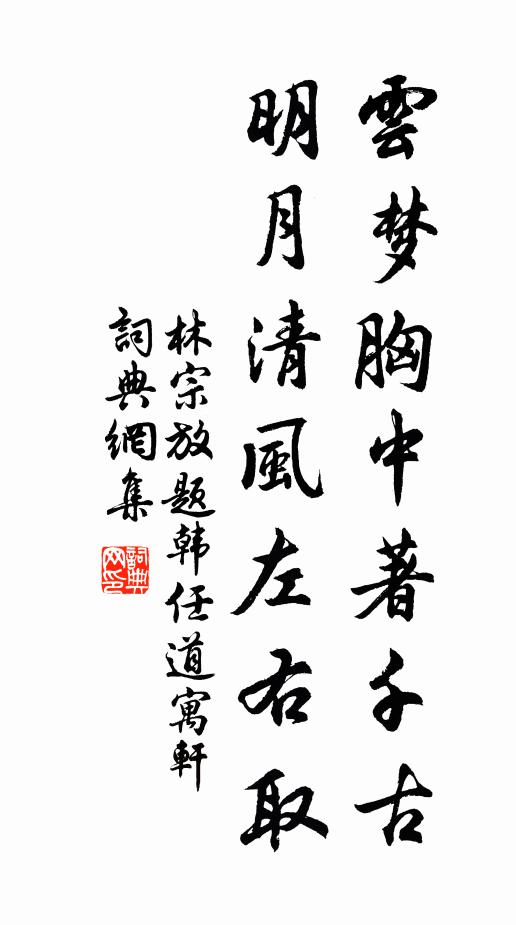 雲梦胸中著千古
明月清風左右取
林宗放题韩任道寓軒
詞典網集
詞典网印